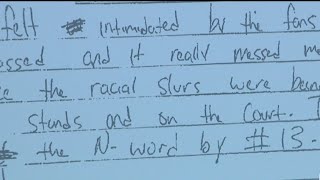 felt intimidated by the fans
ossed and it really messed me
the racial slurs were being
stands and on the Court.
the N-word by #13.